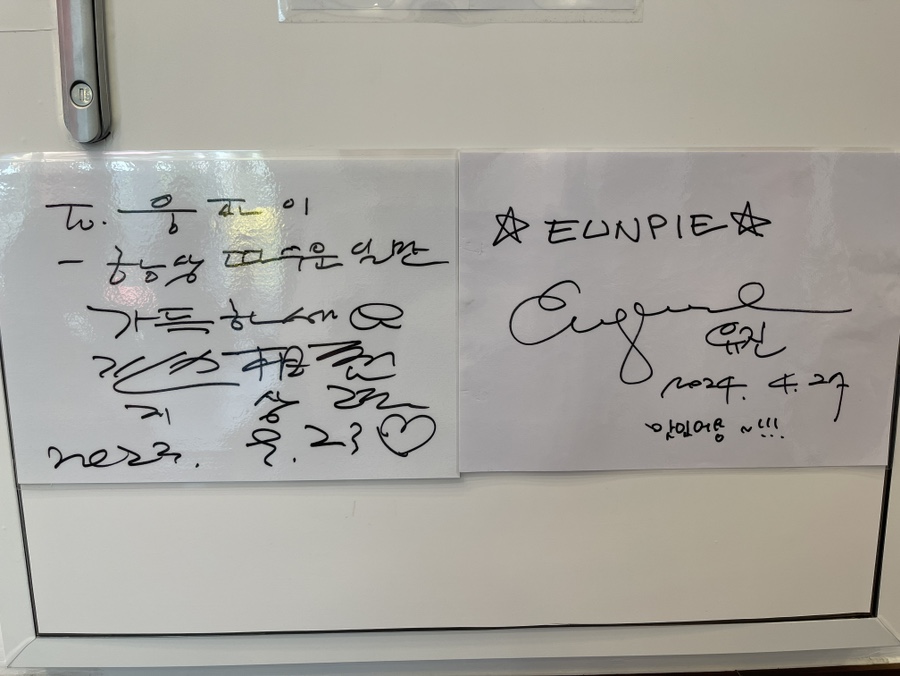 To. 은파이
- 항상 따스운 일만
가득하세요
지상렬
2023. 8. 23 ♡
☆ EUNPIE ☆
Eugene
유진
2024. 4. 27
맛있어용 ~!!!